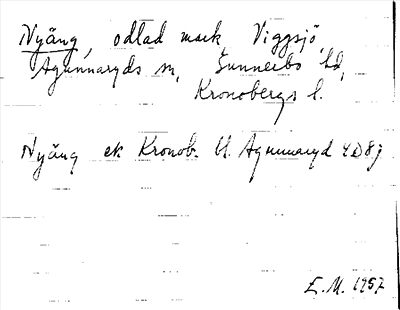 Nyäng, odlad mark Viggsjö,
Agunnaryds sn, Sunnerbo hd,
Kronobergs l.
Nyäng ek Kronob. bl. Agunnaryd 4D8j
E.M. 1957